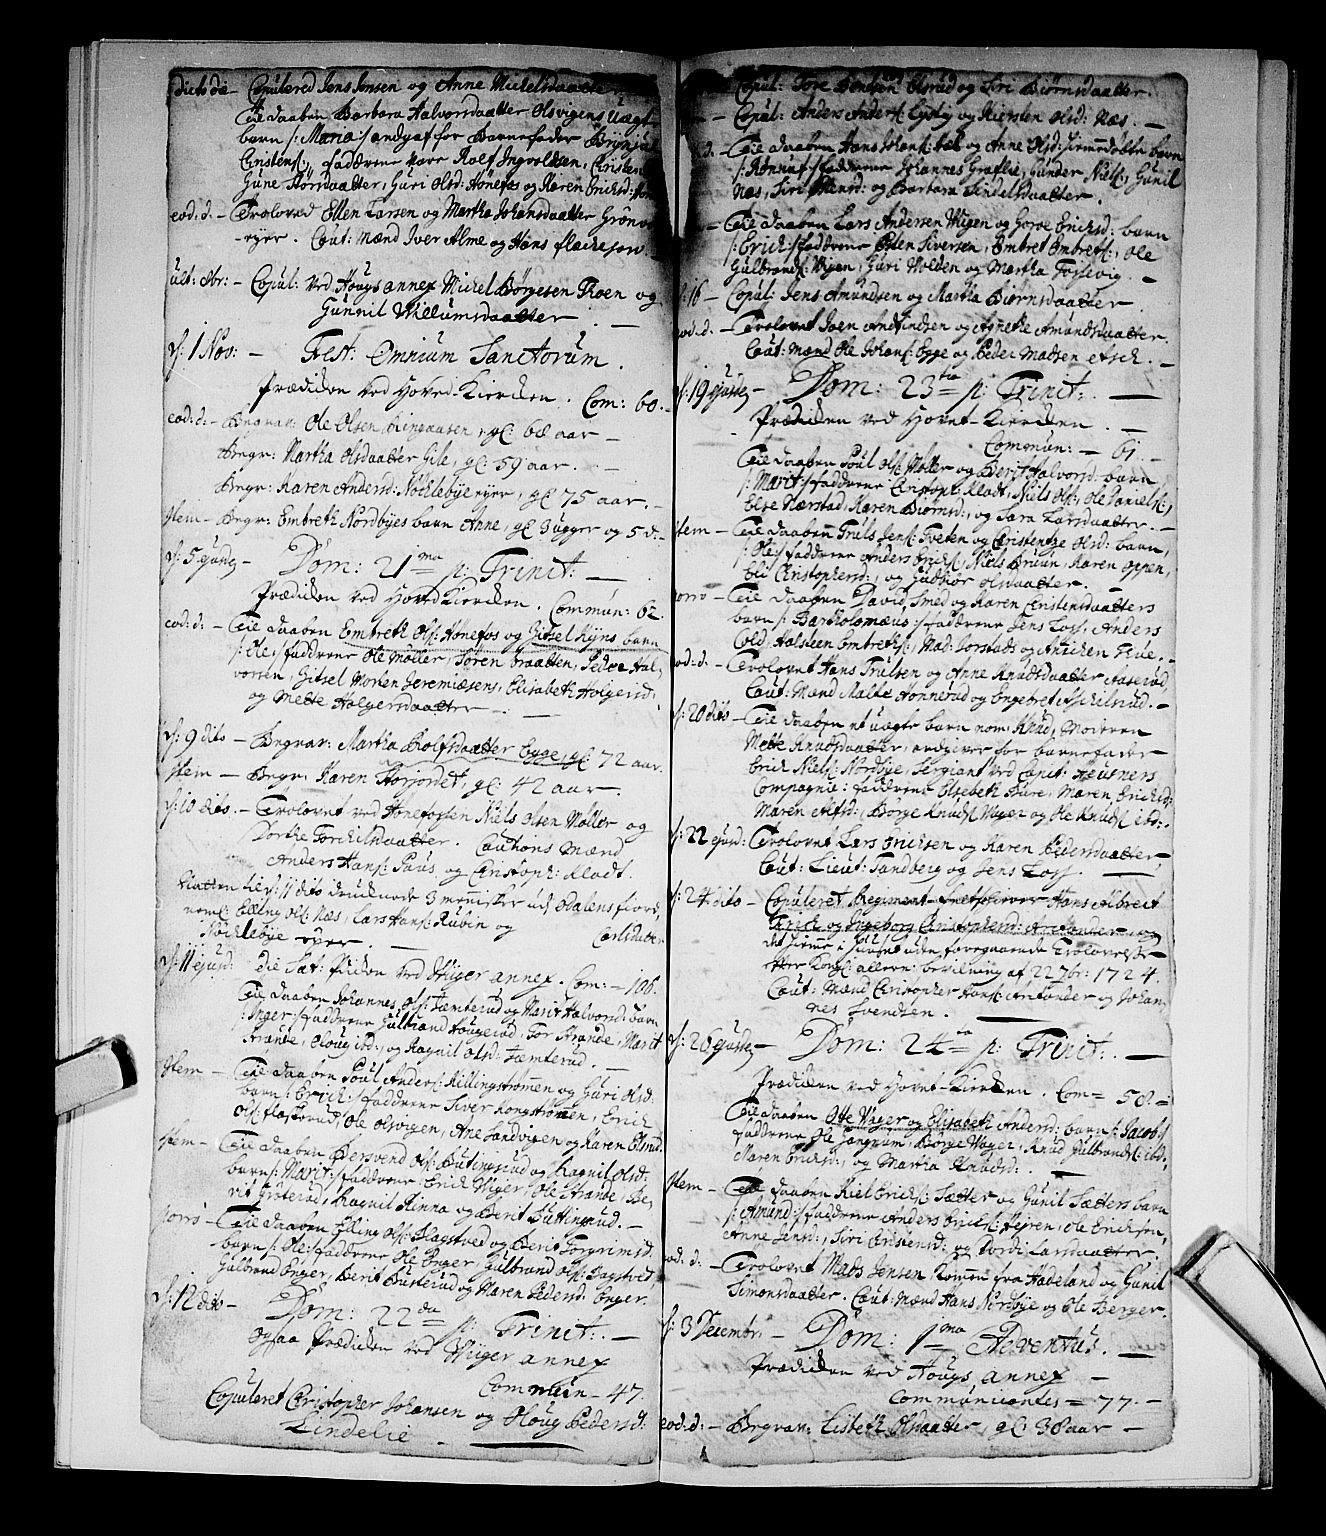 dicto die – Copulered Jens Jensen og Anne Michelsdaatter
Teie daaben Barbara Halvorsdaatter Olsvigens Uægt
barn /: Maria :/ andgaf for Barnefader Brynjul
Cristens:, fadderne vare Rolf Ingvoldsen, Cristen
Gune Thorsdaatter, Guri Olsd: Hønefos og Karen Erichsd:
eod: d: – Troloved Ellen Larsen og Martha Johansdaatter Grønv
eyer. Caut: Mænd Iver Alme og Hans
ult: 8br: – Copul: ved Hougs annex Michel Børgesen Moen og
Gunnil Willumsdaatter. –
d: 1 Nov: – Fest: Omnium Sanctorum.
Prædicken ved Hoved-Kiercken. Com: 60. –
eod: d: – Begrav: Ole Olsen Ringaasen, gl: 62 aar –
Begr: Martha Olsdaatter Gile, gl: 59 aar. –
Begr: Karen Andersd: Nochlebye eyer, gl: 75 aar. –
Item – Begr: Embreth Nordbyes barn Anne, gl: 3 uger og 5 d: –
d: 5 ejusd – Dom: 21ma p: Trinit: –
Prædicken ved Hoved Kiercken. Commun: 62. –
eod: d: – Teie daaben Embreth Ols: Hønefos og Gitsel Kyns barn
/: Ole :/ fadderne Ole Møller, Søren Braatten, Peder Hal-
vorsen, Gitsel Morten Jeremiæsens, Elisabeth Hvigerud,
og Mette Holgersdaatter –
d: 9 dito – Begrav: Martha Rolfsdaatter Egge, gl: 72 aar.
Item – Begr: Karen Storjordet, gl: 42 aar.
d: 10 dito. – Trolovet ved Hønefossen Niels Olsen Møller og
Dorthe Torchilsdaatter. Cautions Mænd
Anders Hans: Paus, og Cristoph: Klodt.
Natten til d: 11 dito druknede 3 menisker ud Odalens fiord,
neml: Elling Ols: Næs, Lars Hans: Rubin og Carlsdatter
Nochlebye eyer. –
d: 11 ejusd: die Sat: Prædicken ved Wiger annex. Com: – 106.
Teie daaben Johannes Ols: Tæmterud og Marit Halvorsd: barn
/: Inger :/ fadderne Gulbrand Hougerud, Tor Strande, Marit
Strande, Houg ibd:, og Ragnil Olsd: Tæmterud. –
Item – Teie daaben Poul Anders: Killingstrømmen og Guri Olsd:
barn /: Erich :/ fadderne Siver Kongstrømen, Erich
Ols: Flaskerud, Ole Olsvigen, Ane Sandvigen og Karen Elsrud
Item – Teie daaben Bersvend Ols: Buttingsrud og Ragnil Olsd:
barn /: Marit :/ fadderne Erich Wiger, Ole Strande, Be-
rit Grøterud, Ragnil Rinna og Berit Buttingsrud. –
porro – Teie daaben Elling Ols: Flagstved og Berit Torgrimsd:
barn /: Ole :/ fadderne Ole Enger, Gulbrand Ols: Dagstved
Gulbrand Enger, Berit Busterud og Maren Pedersd: Enger.
d: 12 dito – Dom: 22da p: Trinit: –
ogsaa Prædicken ved Wiger annex
Commun – 47.
Copuleret Cristopher Johansen og Houg Pedersd:
Lindelie –
Copul: Tore Bentsen Elsrud og Siri Biørnsdaatter.
Copul: Anders Anders: Lysty og Kiersten Olsd: Næs. –
d: – Teie daaben Hans Johans: bæk og Anne Olsd: barn
/: Rønnaug :/ fadderne Johannes Graflie, Gunder Niels:, Gunil
Næs, Siri Jensd: og Barbara Lindelsdaatter.
– Teie daaben Lars Andersen Wigen og Gore Erichsd: barn
/: Erich :/ fadderne Peder Siversen, Embret Embrets:, Ole
Gulbrands: Wigen, Guri Wolden og Martha Fossevig. –
d: 16 – Copul: Jens Amundsen og Martha Biørnsdaatter
eod: d: – Trolovet Joen Andfindsen og Agnethe Amundsdaatter
Caut: Mænd Ole Johans: Egge og Peder Madsen –
d: 19 ejusd – Dom: 23tia p: Trinit: –
Prædicken ved Hovet-Kiercken. –
Commun: – 61. –
Teie daaben Poul Ols: Møller og Berit Halvorsd: barn,
/: Marit :/ fadderne Cristoph: Klodt, Niels Ols:, Ole Daniels:,
Else Nærstad, Karen Biørnsd:, og Sara Larsdaatter. –
Item – Teie daaben Truls Jens: Tveten og Christentze Olsd: barn,
/: Ole :/ fadderne Anders Erichs:, Niels Bruun, Karen Oppen,
Eli Cristophersd:, og Gudbiør Olsdaatter. –
porro – Teie daaben David Smed og Karen Cristensdaatters
barn /: Bartholomæus :/ fadderne Jens Loss, Anders
Cold, Halsteen Embrets:, Mad: Jorstads og Anichen Hue. –
eod: d: – Trolovet Hans Trulsen og Anne Knudsdaatter Aaserud,
Caut: Mænd Malte Hønnerud og Engebret Aschilsrud. –
d: 20 dito – Teie daaben et uægte barn nom: Knud, Moderen
Mette Knudsdaatter, andgiver for barnefader
Erich Niels: Nordbye, Sergiant ved Capit: Heusners
Compagnie: fadderne Elsebeth Hure, Maren Erichsd:
Maren Alfsd:, Børge Knuds: Wager og Ole Knuds: ibd: –
d: 22 ejusd: Trolovet Lars Erichsen og Karen Pedersdaatter –
Caut: Lieut: Tandberg og Jens Loss. –
d: 24 dito – Copuleret Regiment-Feltskierer Hans Albrect
Frich og Ingeborg Cristophersd: Arctander, og
det hjemme i Huset uden foregaaende Trolovelse
efter Kongl: allern: bevilning af 22 7br: 1724.
Caut: Mænd Cristopher Hans: Arctander og Johan-
nes Svendsen. –
d: 26 ejusd – Dom: 24ta p: Trinit: –
Prædicken ved Hovet-Kiercken. Com = 58 =
Teie daaben Otte Wager og Elisabeth Andersd: barn /: Jacob :/
fadderne Ole Jangrum, Børge Wager, Knud Gulbrands: ibd:,
Maren Erichsd:, og Martha Knudsd: –
Item – Teie daaben Kiel Erichs: Sætter og Gunil Sætters barn
/: Amund :/ fadderne Anders Erichs: Hejren, Ole Erichsen,
Anne Jensd:, Siri Cristensd: og Dordi Larsdaatter. –
eod: d: – Trolovet Mads Jensen kommen fra Hadeland og Gunil
Simonsdaatter. Caut: Mænd Hans Nordbye og Ole Berger.
d: 3 Decembr: – Dom: 1ma Adventus. –
Prædicken ved Hougs annex –
Communicantes = 77. –
eod: d: – Begrav: Lisbeth Olsdaatter, gl: 38 aar –